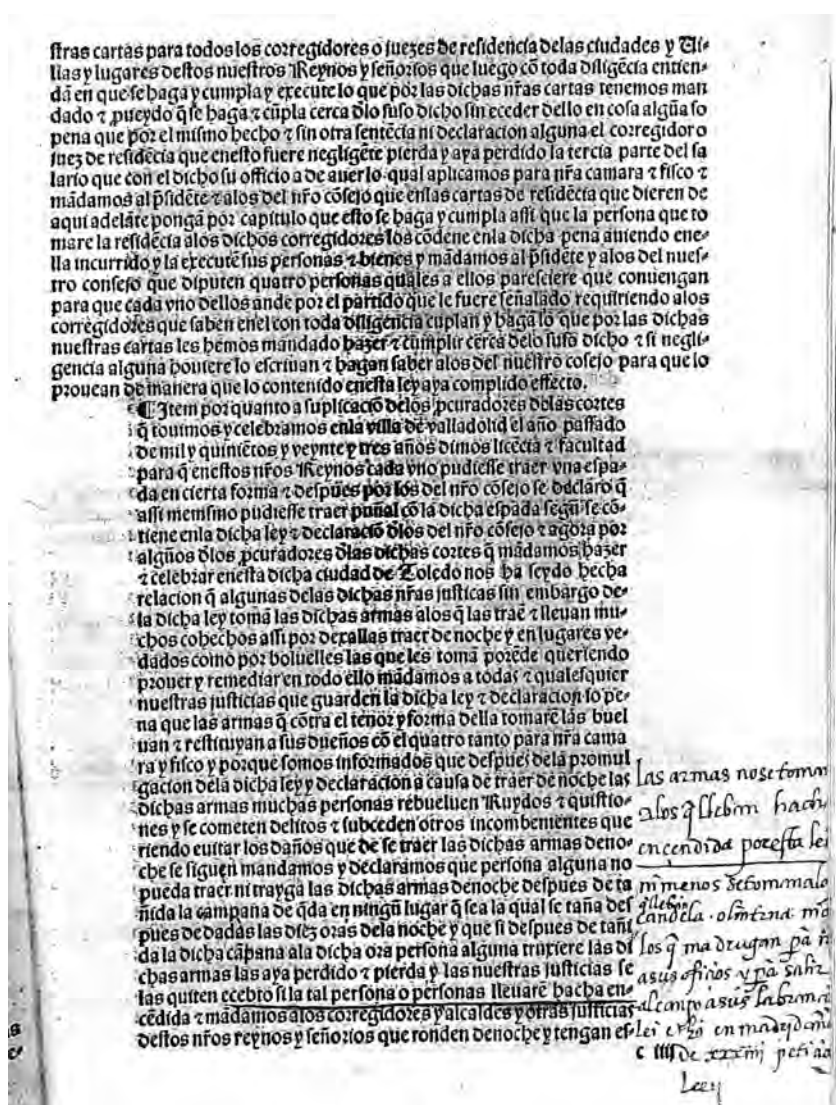 stras cartas para todos los corregidores o juezes de residencia delas ciudades y Ui-
llas y lugares destos nuestros Reynos y señorios que luego cõ toda diligẽcia entien-
dã en que se haga y cumpla y execute lo que por las dichas nr̃as cartas tenemos man
dado ⁊ ꝓueydo q̃ se haga ⁊ cũpla cerca dlo suso dicho sin eceder dello en cosa algũa so
pena que por el mismo hecho ⁊ sin otra sentẽcia ni declaracion alguna el corregidor o
juez de residẽcia que enesto fuere negligẽte pierda y aya perdido la tercia parte del sa
lario que con el dicho su officio a de auer lo qual aplicamos para nr̃a camara ⁊ fisco ⁊
mãdamos al p̃sidẽte ⁊ alos del nr̃o cõsejo que enlas cartas de residẽcia que dieren de
aqui adelãte pongã por capitulo que esto se haga y cumpla assi que la persona que to
mare la residẽcia alos dichos corregidores los cõdene enla dicha pena auiendo ene-
lla incurrido y la executẽ sus personas ⁊ bienes y mãdamos al p̃sidẽte y alos del nues-
tro consejo que diputen quatro personas quales a ellos paresciere que conuengan
para que cada vno dellos ande por el partido que le fuere señalado requiriendo alos
corregidores que saben enel con toda diligencia cuplan y hagã lo que por las dichas
nuestras cartas les hemos mandado hazer ⁊ cumplir cerca delo suso dicho ⁊ si negli-
gencia alguna houiere lo escriuan ⁊ hagan saber alos del nuestro cõsejo para que lo
prouean de manera que lo contenido enesta ley aya complido effecto.
¶ Item por quanto a suplicaciõ delos ꝓcuradores delas cortes
q̃ touimos y celebramos enla villa de valladolid el año passado
de mil y quiniẽtos y veynte y tres años dimos licẽcia ⁊ facultad
para q̃ enestos nr̃os Reynos cada vno pudiesse traer vna espa-
da en cierta forma ⁊ despues por los del nr̃o cõsejo se declaro q̃
assi memismo pudiesse traer puñal cõ la dicha espada segũ se cõ-
tiene enla dicha ley ⁊ declaraciõ dlos del nr̃o cõsejo ⁊ agora por
algũos dlos ꝓcuradores dlas dichas cortes q̃ mãdamos hazer
⁊ celebrar enesta dicha ciudad de Toledo nos ha seydo hecha
relacion q̃ algunas delas dichas nr̃as justicas sin embargo de-
la dicha ley tomã las dichas armas alos q̃ las traẽ ⁊ lleuan mu-
chos cohechos assi por dexallas traer de noche y en lugares ve-
dados como por boluelles las que les tomã porẽde queriendo
prouer y remediar en todo ello mãdamos a todas ⁊ qualesquier
nuestras justicias que guarden la dicha ley ⁊ declaracion so pe-
na que las armas q̃ cõtra el tenor y forma della tomarẽ las buel
uan ⁊ restituyan a sus dueños cõ el quatro tanto para nr̃a cama
ra y fisco y porque somos informados que despues dela promul
gacion dela dicha ley y declaracion a causa de traer de noche las
dichas armas muchas personas rebueluen Ruydos ⁊ quistio-
nes y se cometen delitos ⁊ subceden otros incombenientes que
riendo euitar los daños que de se traer las dichas armas deno-
che se siguen mandamos y declaramos que persona alguna no
pueda traer ni trayga las dichas armas denoche despues de ta
ñida la campana de q̃da en ningũ lugar q̃ sea la qual se taña des
pues de dadas las diez oras dela noche y que si despues de tañi
da la dicha cãpana ala dicha ora persona alguna truxere las di
chas armas las aya perdido ⁊ pierda y las nuestras justicias se
las quiten ecebto si la tal persona o personas lleuarẽ hacha en-
cẽdida ⁊ mãdamos alos corregidores y alcaldes y otras justicias
destos nr̃os reynos y señorios que ronden denoche y tengan es-
las armas no se tomen
alos q̃ lleban hach
encendida por esta lei
ni menos se tomma lo
q̃ lleban
candela . o linterna
los q̃ madrugan pã
a sus oficios y pã salir
al campo a sus labran
lei en madrid
c iiii de xxxiiij peti
Leey